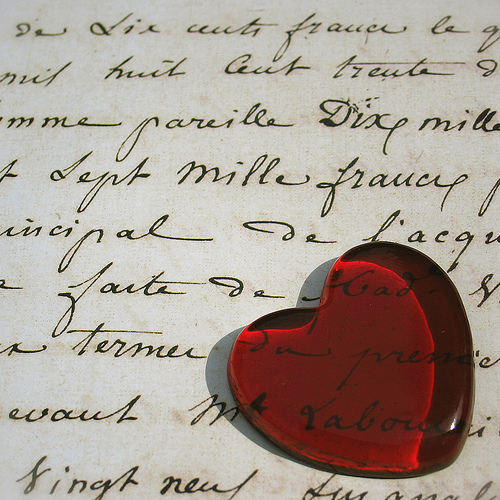 de Six cents francs le
mil huit Cent trente
omme pareille Dix mille
t Sept mille francs
incipal de l'acqu
faite de Mad.
termes du premie
evant Mt Labou
Vingt neuf